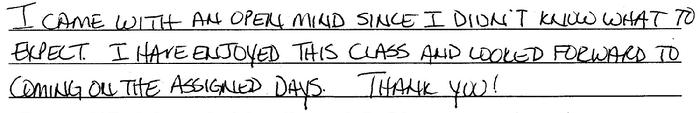 I CAME WITH AN OPEN MIND SINCE I DIDN'T KNOW WHAT TO
EXPECT. I HAVE ENJOYED THIS CLASS AND LOOKED FORWARD TO
COMING ON THE ASSIGNED DAYS. THANK YOU!